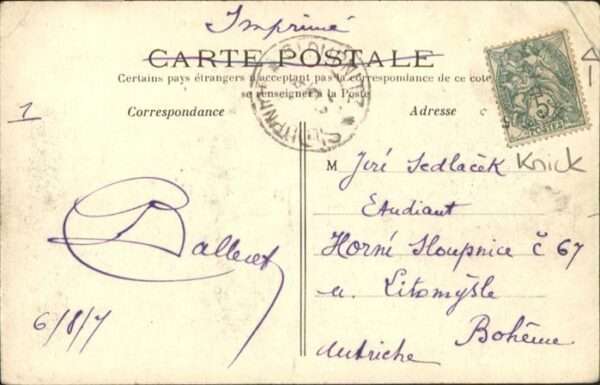 Imprimé
CARTE POSTALE
Certains pays étrangers n'acceptant pas la correspondance de ce coté
se renseigner à la Poste
Correspondance
Adresse
5
POSTES
1
Knick
M Jiré Sedlaček
Etudiant
Horné Sloupnice č 67
u. Litomyšle
Bohême
Autriche
6/8/7